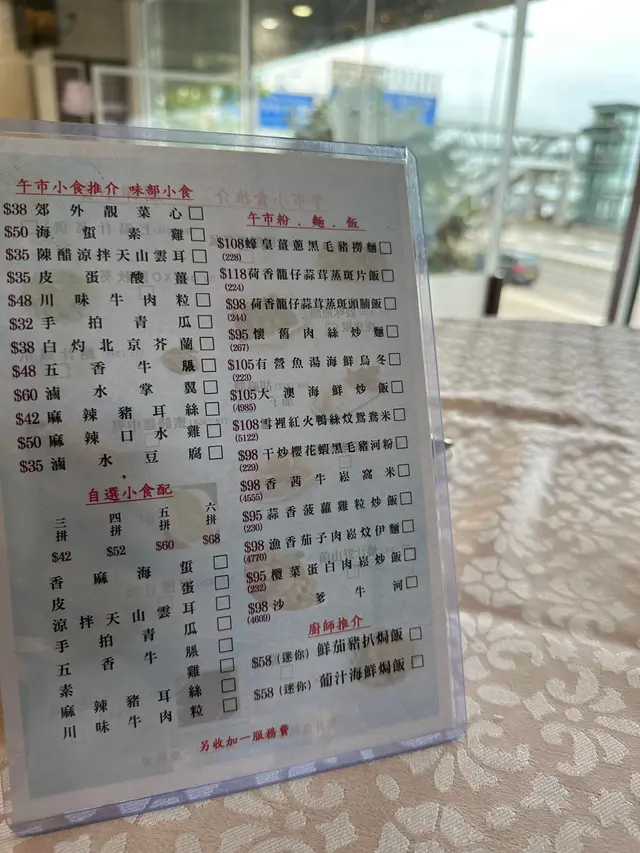 午市小食推介 味部小食
$38 郊外靚菜心
$50 海蜇素雞
$35 陳醋涼拌天山雲耳
$35 皮蛋酸薑
$48 川味牛肉粒
$32 手拍青瓜
$38 白灼北京芥蘭
$48 五香牛脹
$60 滷水掌翼
$42 麻辣豬耳絲
$50 麻辣口水雞
$35 滷水豆腐
自選小食配
三拼 四拼 五拼 六拼
$42 $52 $60 $68
香麻海蜇
皮蛋
涼拌天山雲耳
手拍青瓜
五香牛脹
素雞
麻辣豬耳絲
川味牛肉粒
午市粉．麵．飯
$108 蠔皇薑蔥黑毛豬撈麵
(228)
$118 荷香籠仔蒜茸蒸斑片飯
(224)
$98 荷香籠仔蒜茸蒸斑頭腩飯
(244)
$95 懷舊肉絲炒麵
(267)
$105 有營魚湯海鮮烏冬
(223)
$105 大澳海鮮炒飯
(4985)
$108 雪裡紅火鴨絲炆鴛鴦米
(5122)
$98 干炒櫻花蝦黑毛豬河粉
(229)
$98 香茜牛崧窩米
(4555)
$95 蒜香菠蘿雞粒炒飯
(230)
$98 漁香茄子肉崧炆伊麵
(4770)
$95 欖菜蛋白肉崧炒飯
(232)
$98 沙爹牛河
(4609)
廚師推介
$58 (迷你) 鮮茄豬扒焗飯
$58 (迷你) 葡汁海鮮焗飯
另收加一服務費